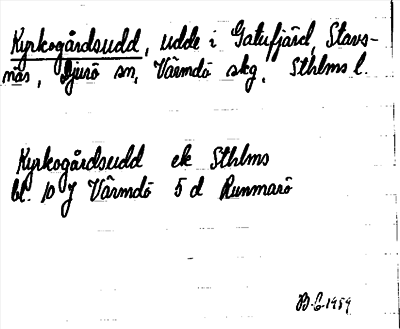 Kyrkogårdsudd, udde i Gatufjärd, Stavs-
näs, Djurö sn, Värmdö skg, Sthlms l.
Kyrkogårdsudd ek Sthlms
bl. 10 J Värmdö 5 d Runmarö
1989